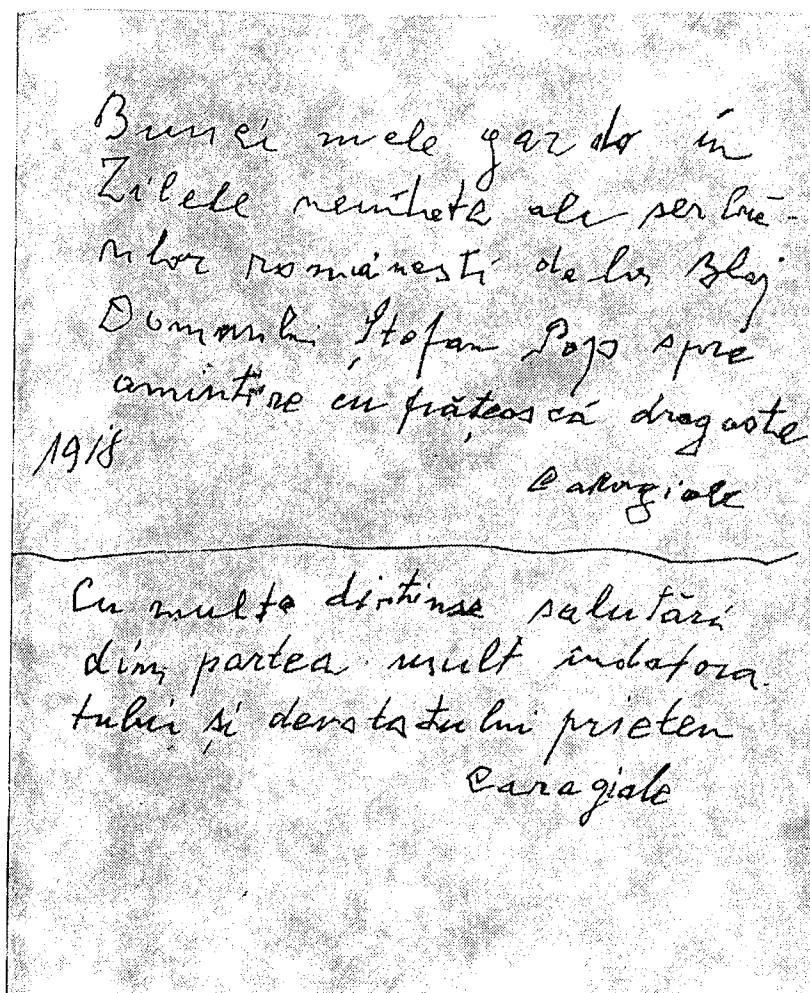 Bunei mele gazde în
Zilele neuitate ale serbă-
rilor românesti dela Blaj
Domnului Ștefan Pop spre
amintire cu frățească dragoste
1918
Caragiale
Cu multe distinse salutări
din partea mult îndatora-
tului și devotatului prieten
Caragiale